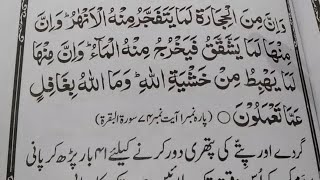 وَاِنَّ مِنَ الْحِجَارَةِ لَمَا يَتَفَجَّرُ مِنْهُ الْاَنْهٰرُ ؕ وَاِنَّ
مِنْهَا لَمَا يَشَّقَّقُ فَيَخْرُجُ مِنْهُ الْمَآءُ ؕ وَاِنَّ مِنْهَا
لَمَا يَهْبِطُ مِنْ خَشْيَةِ اللّٰهِ ؕ وَمَا اللّٰهُ بِغَافِلٍ
عَمَّا تَعْمَلُوْنَ ○ (پارہ نمبر۱ آیت نمبر۷۴ سورۃ البقرۃ)
گردے اور پتے کی پتھری دور کرنے کیلئے ۴۱ بار پڑھ کر پانی